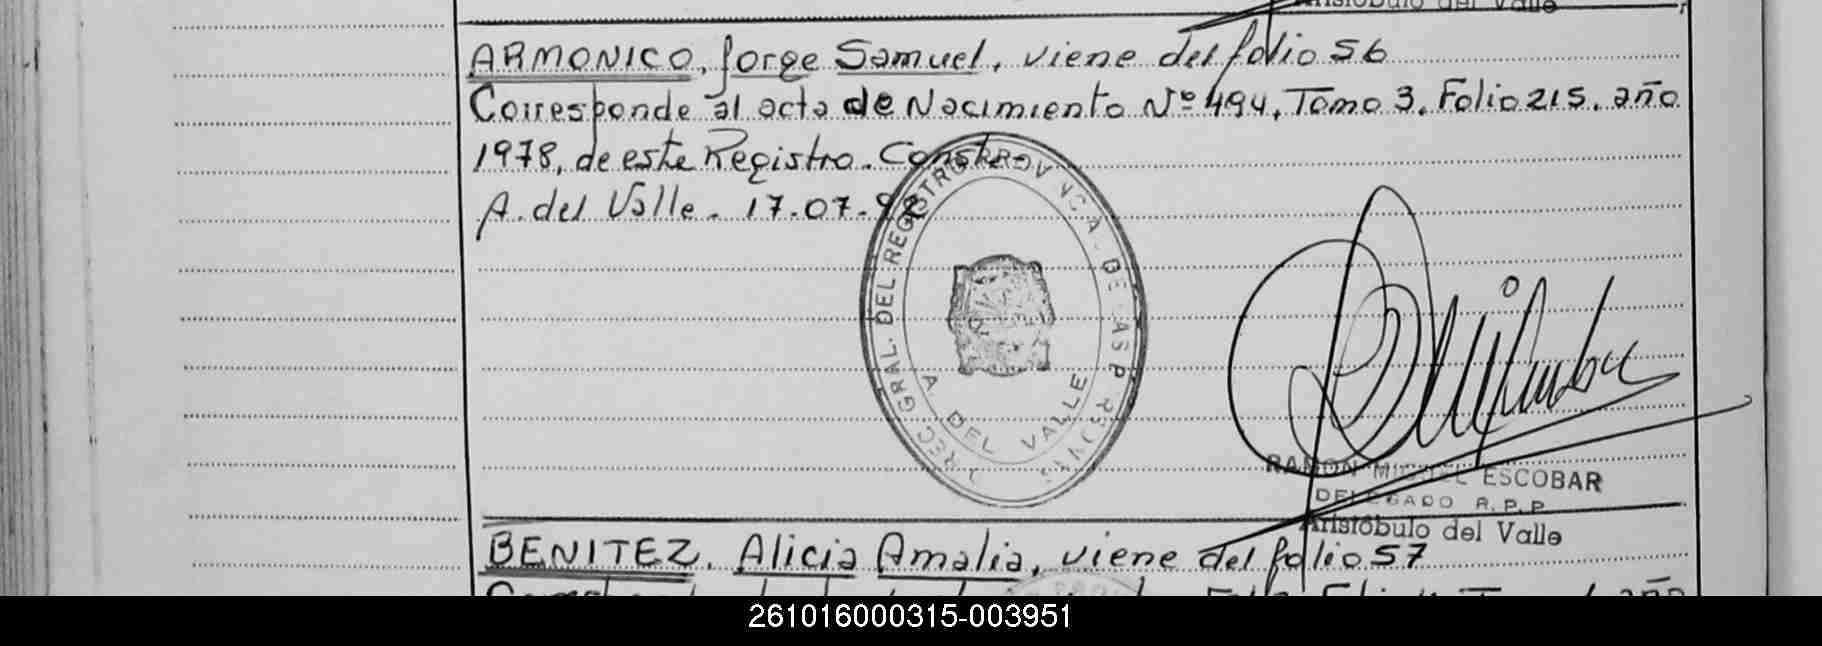 Aristóbulo del Valle
ARMONICO, Jorge Samuel, viene del folio 56
Corresponde al acta de Nacimiento Nº 494, Tomo 3, Folio 215, año
1978, de este Registro. Conste-
A. del Valle. 17.07.
DIREC. GRAL. DEL REGISTRO PROVINCIAL DE LAS PERSONAS
A. DEL VALLE
RAMON MIGUEL ESCOBAR
DELEGADO R.P.P
Aristóbulo del Valle
BENITEZ, Alicia Amalia, viene del folio 57
año
261016000315-003951